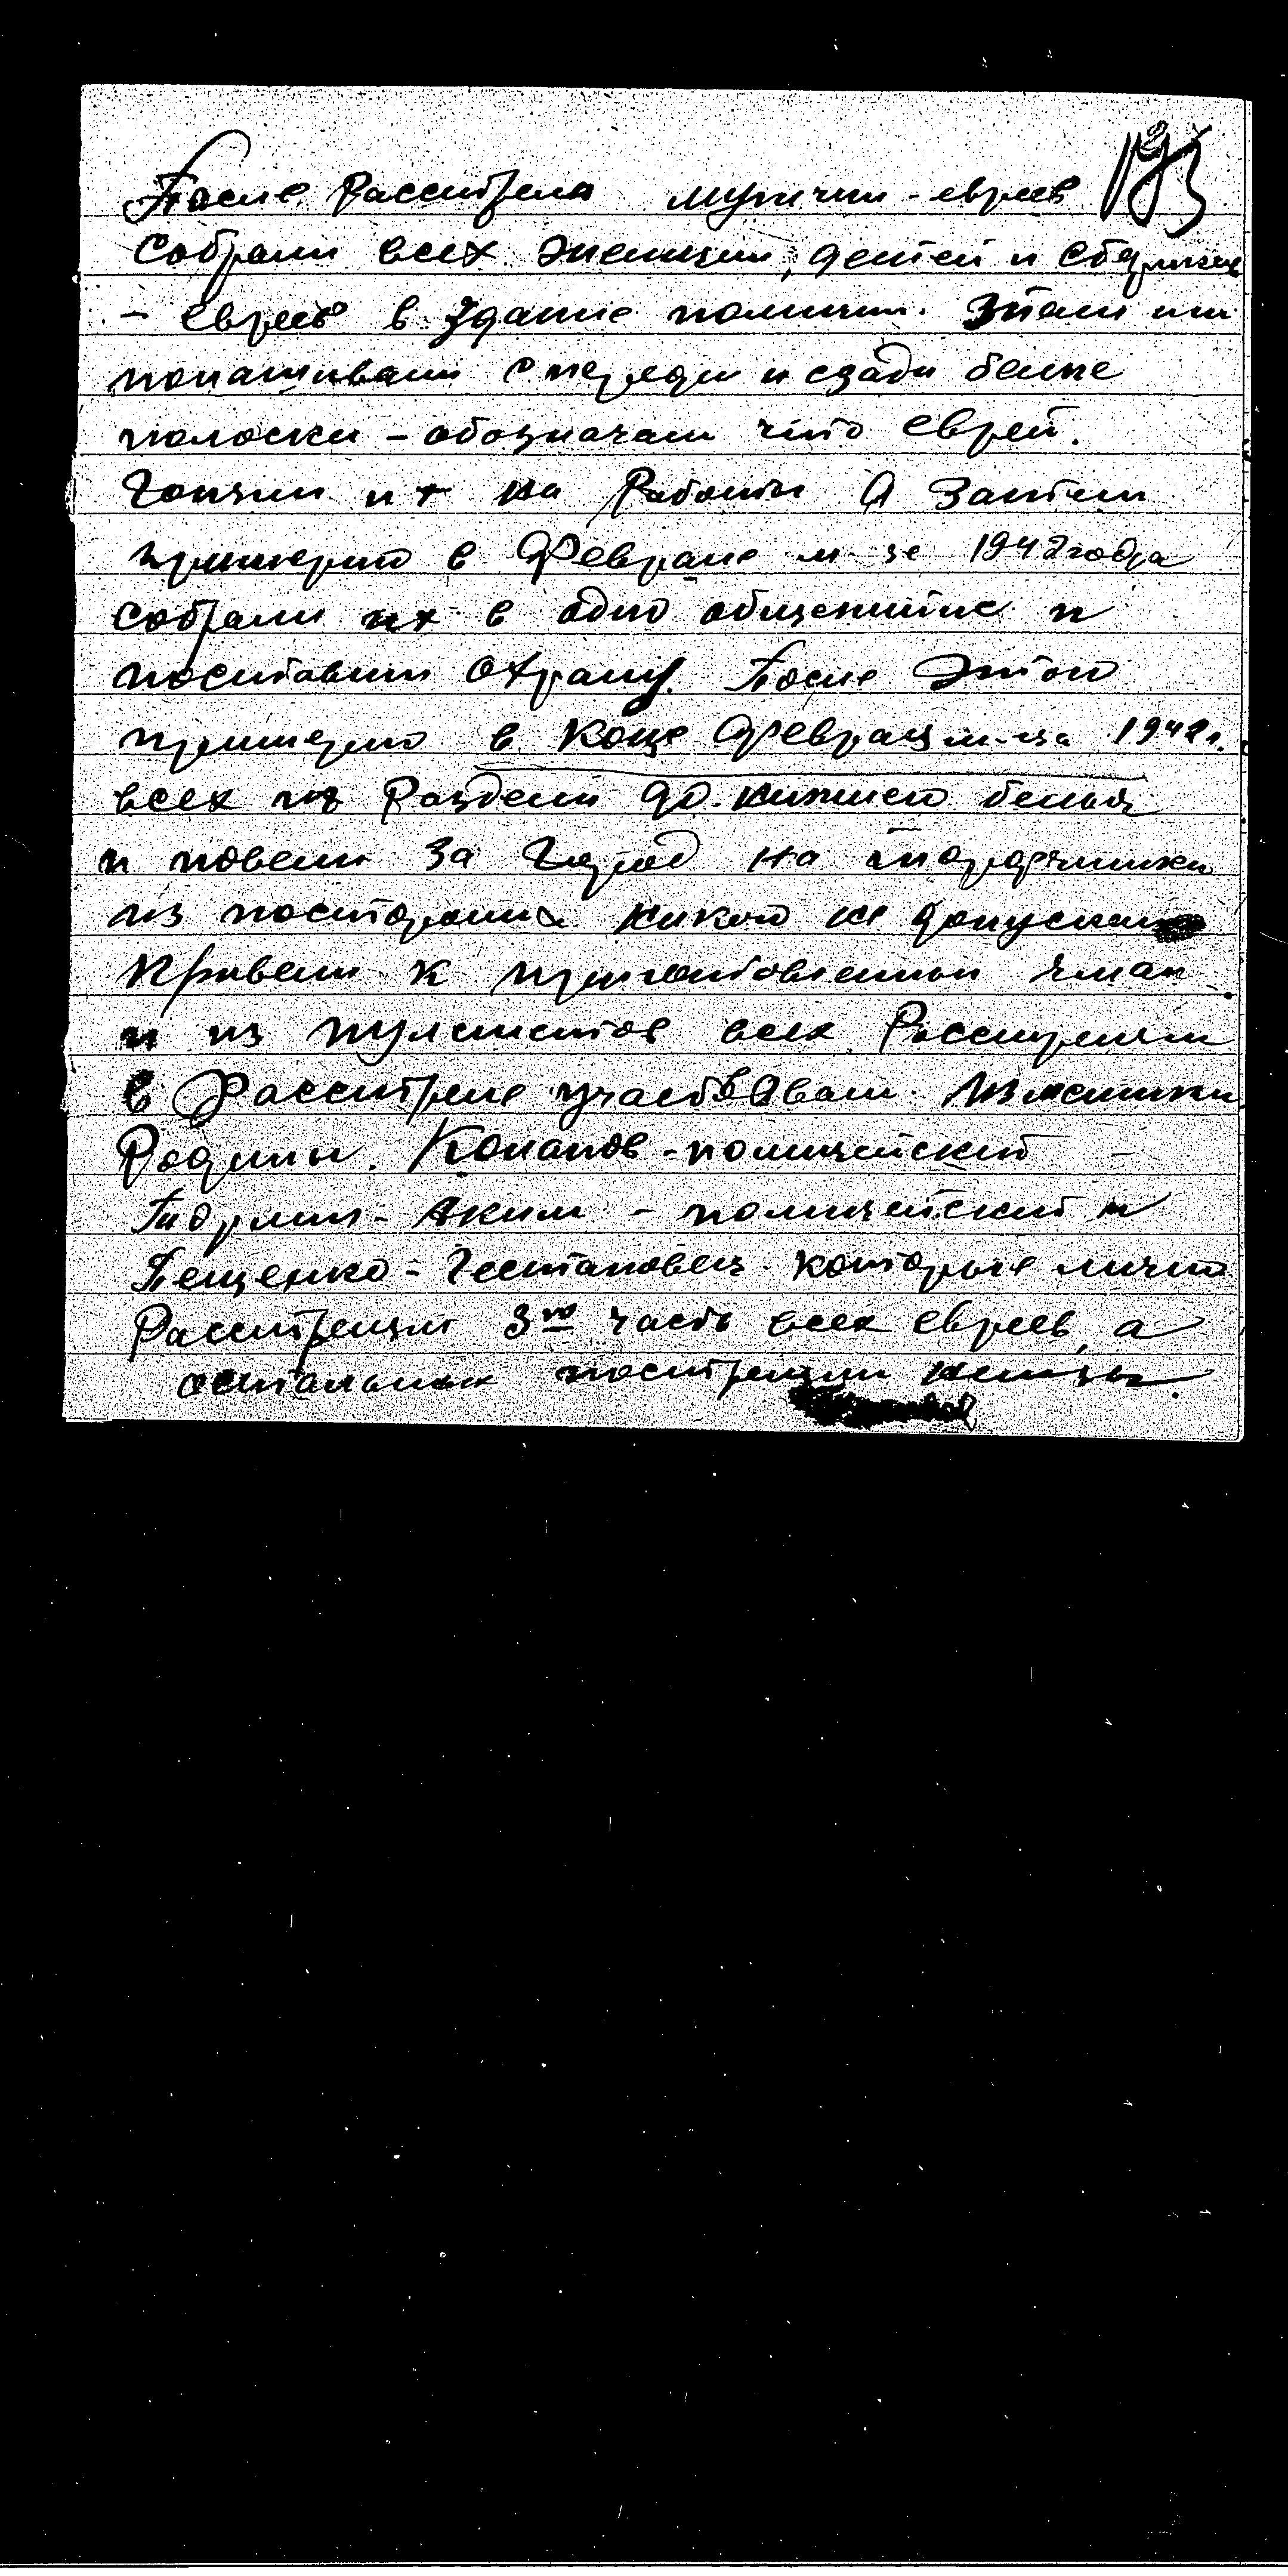 После расстрела мужчин-евреев
собрали всех женщин, детей и стариков
- евреев в здание полиции.
понашивали спереди и сзади белые
полоски - обозначали что еврей.
Гоняли их на работы А затем
примерно в Феврале м-це 1942 года
собрали их в одно общежитие и
поставили охрану. После этого
примерно в конце Февраля м-ца 1942 г.
всех их раздели до нижнего белья
и повели за город на
из посторонних никого не допускали
Привели к приготовленной ямам
и из пулеметов всех Расстреляли
в Расстреле участвовали Изменники
Родины. Конанов - полицейский
Аким - полицейский и
Пещенко - Гестаповец. которые лично
Расстреляли 3ю часть всех евреев, а
остальных постреляли немцы.